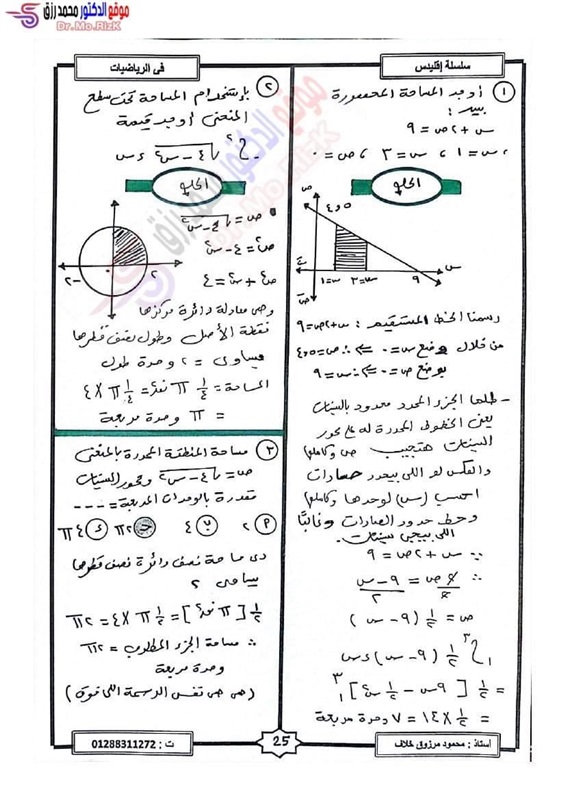 موقع الدكتور محمد رزق
Dr.Mo.RizK
سلسلة إقليدس
فى الرياضيات
١ أوجد المساحة المحصورة
بين :
س + ٢ص = ٩
، س = ١ ، س = ٣ ، ص = ٠
الحل
ص
٤و٥
س
س = ١ س = ٣ ٩
رسمنا الخط المستقيم : س + ٢ص = ٩
من خلال وضع س = ٠ ⇐ ∴ ص = ٤و٥
بوضع ص = ٠ ⇐ ∴ س = ٩
- طالما الجزء المحدد محدود بالسينات
يعنى الخطوط المحددة له على محور
السينات هتجيب ص وتكامل
والعكس لو اللى بيحدد صادات
احسب (س) لوحدها وكامل
وحط حدود الصادات وغالبًا
اللى بيجى سينات.
∵ س + ٢ص = ٩
∴ ٢ص/٢ = ٩ - س/٢
ص = ١/٢ (٩ - س)
١∫٣ ١/٢ (٩ - س) ءس
= ١/٢ [٩س - ١/٢ س٢]١ ٣
= ١/٢ × ١٤ = ٧ وحدة مربعة
٢ بإستخدام المساحة تحت سطح
المنحنى أوجد قيمة
٠∫٢ √٤ - س٢ ءس
الحل
ص = √٤ - س٢
ص٢ = ٤ - س٢
ص٢ + س٢ = ٤
-٢ ٢
وهى معادلة دائرة مركزها
نقطة الأصل وطول نصف قطرها
يساوى = ٢ وحدة طول
المساحة = ١/٤ π نق٢ = ١/٤ π × ٤
= π وحدة مربعة
٣ مساحة المنطقة المحددة بالمنحنى
ص = √٤ - س٢ ومحور السينات
مقدرة بالوحدات المربعة = ----
أ ٢ ب ٤ ج ٢π د ٤π
دى مساحة نصف دائرة نصف قطرها
يساوى ٢
١/٢ [π نق٢] = ١/٢ π × ٤ = ٢π
∴ مساحة الجزء المطلوب = ٢π
وحدة مربعة
(هى هى نفس الرسمة اللى فوق)
أستاذ : محمود مرزوق خلاف
25
ت : 01288311272